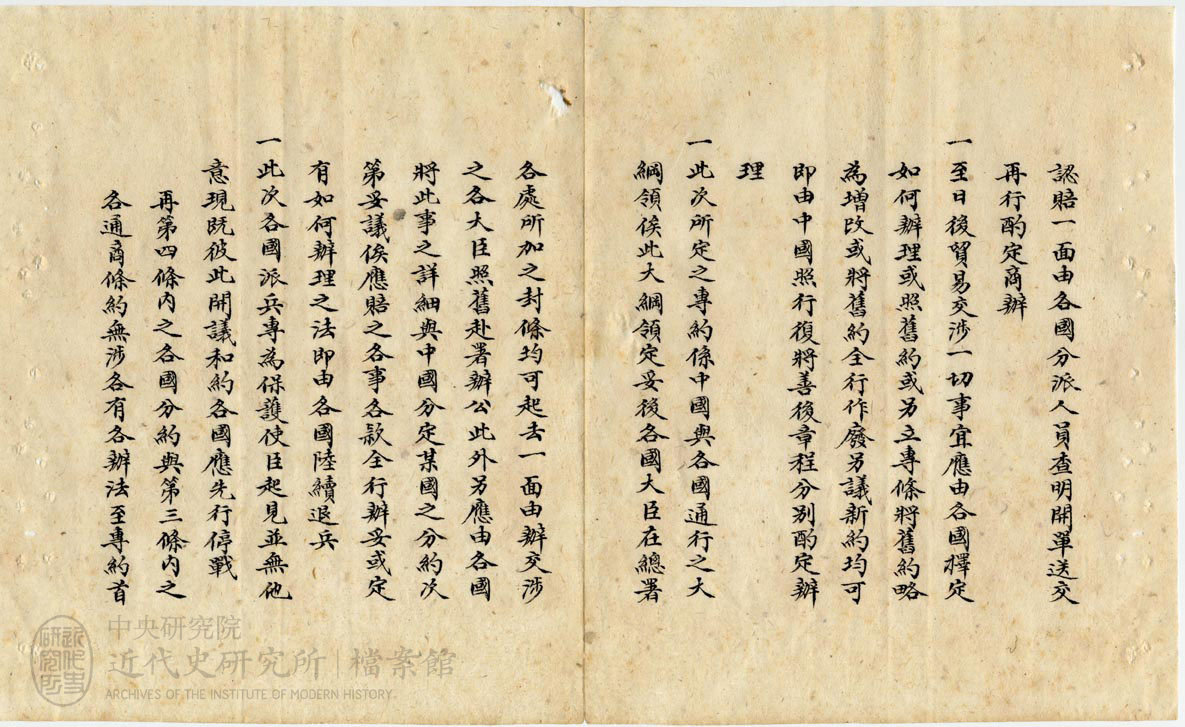 認賠一面由各國分派人員查明開單送交
再行酌定商辦
一至日後貿易交涉一切事宜應由各國擇定
如何辦理或照舊約或另立專條將舊約略
為增改或將舊約全行作廢另議新約均可
即由中國照行復將善後章程分別酌定辦
理
一此次所定之專約係中國與各國通行之大
綱領俟此大綱領定妥後各國大臣在總署
各處所加之封條均可起去一面由辦交涉
之各大臣照舊赴署辦公此外另應由各國
將此事之詳細與中國分定某國之分約次
第妥議俟應賠之各事各款全行辦妥或定
有如何辦理之法即由各國陸續退兵
一此次各國派兵專為保護使臣起見並無他
意現既彼此開議和約各國應先行停戰
再第四條內之各國分約與第三條內之
各通商條約無涉各有各辦法至專約首
中央研究院
近代史研究所|檔案館
ARCHIVES OF THE INSTITUTE OF MODERN HISTORY